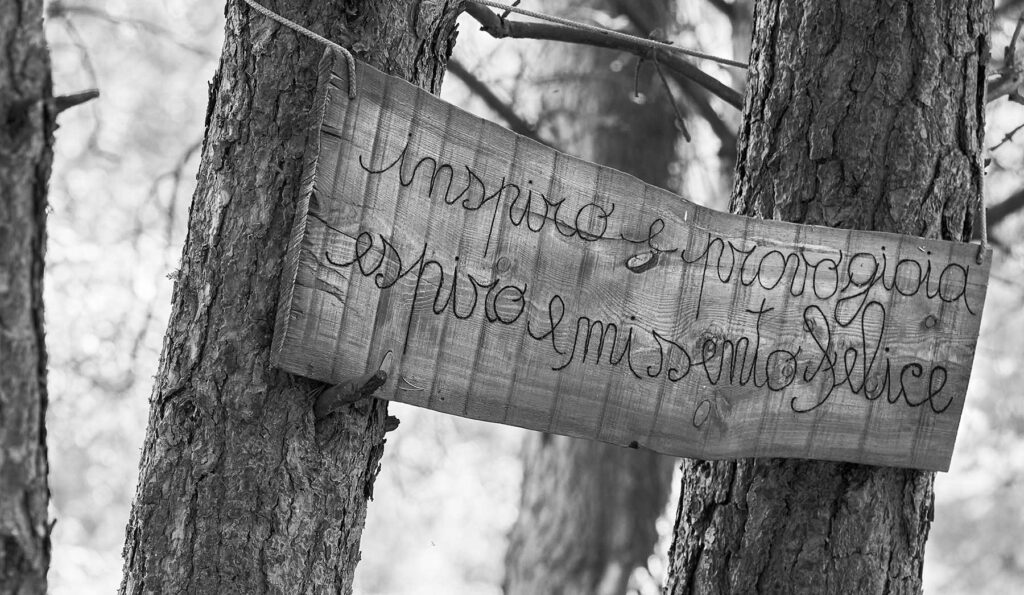 inspiro e provo gioia
espiro e mi sento felice